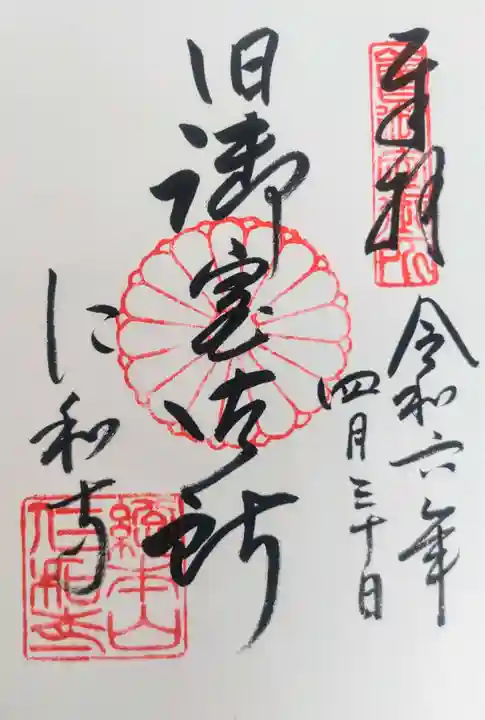 奉拝
令和六年
四月三十日
旧御室御所
仁和寺
總本山
仁和寺